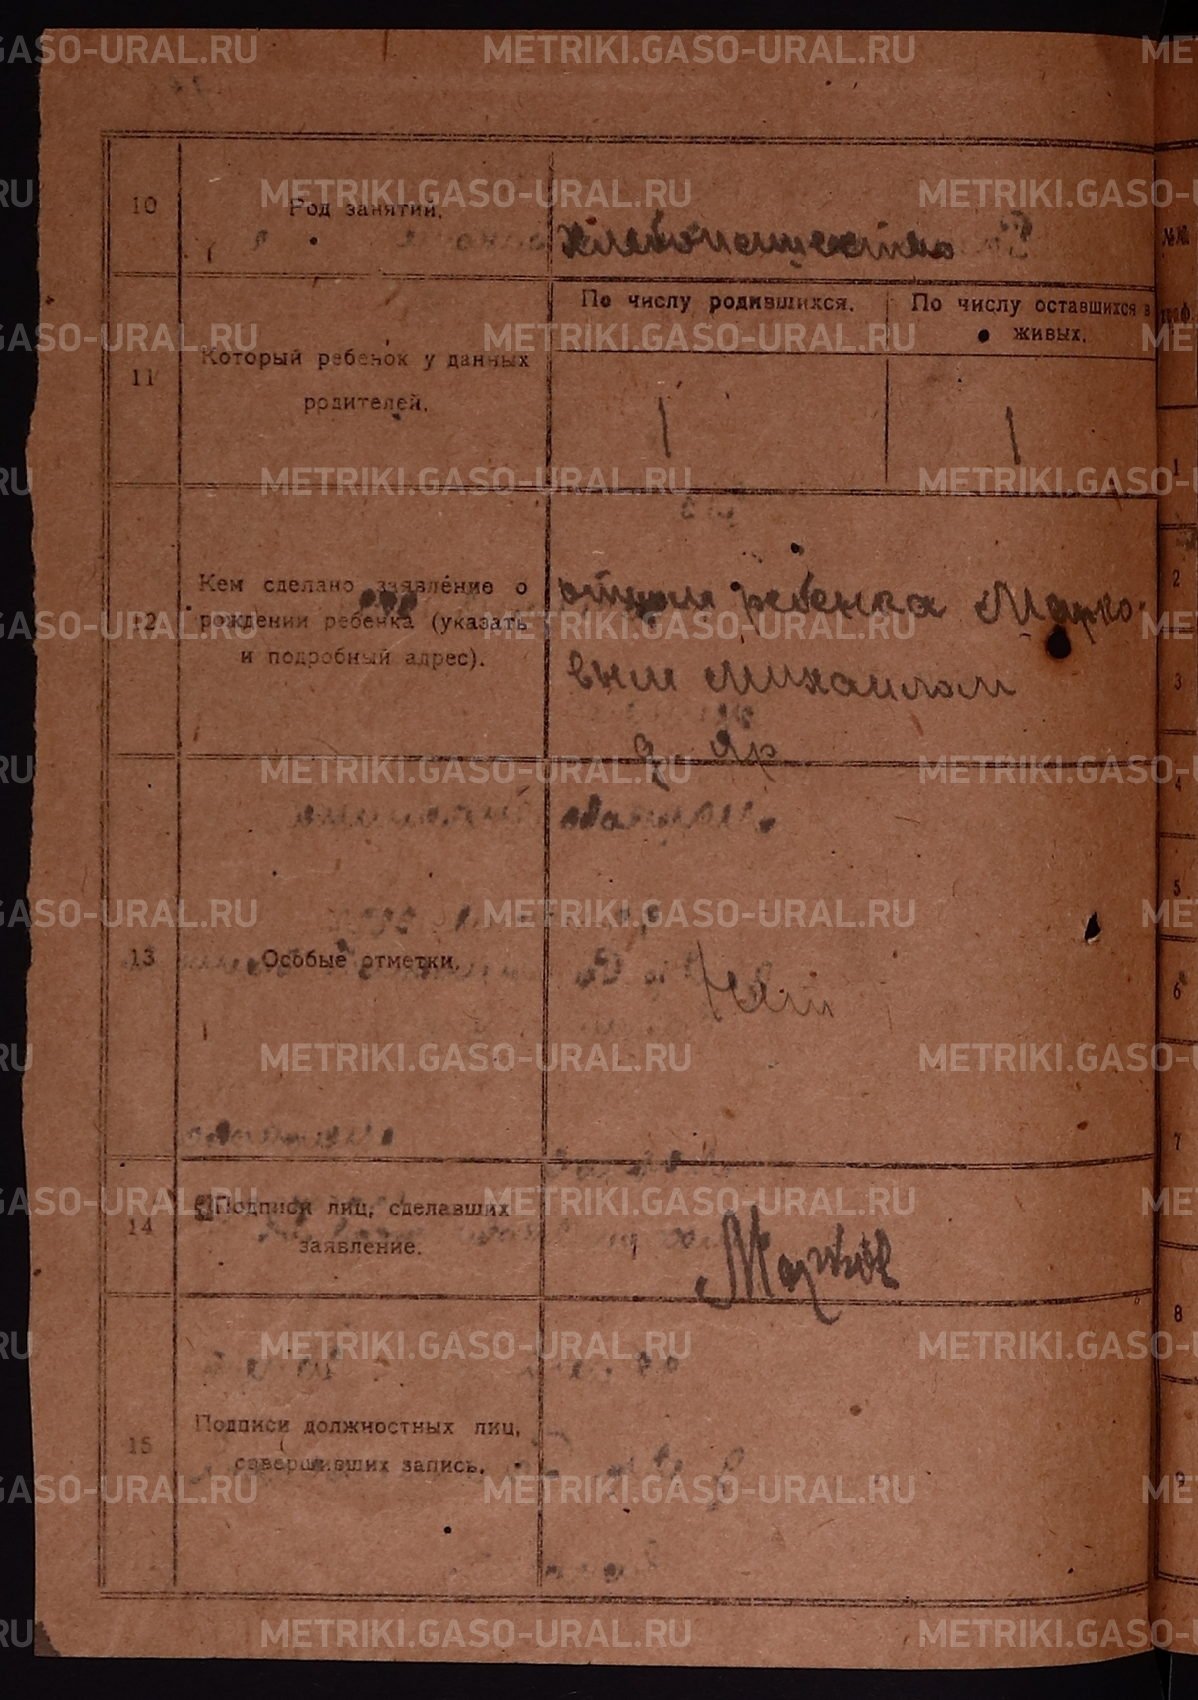 METRIKI.GASO-URAL.RU
10
Род занятий.
хлебопашество
11
Который ребенок у данных
родителей.
По числу родившихся.
По числу оставшихся в
живых.
1
1
12
Кем сделано заявление о
рождении ребенка (указать
и подробный адрес).
отцом ребенка Марко-
вым Михаилом
д. Яр
13
Особые отметки.
Нет
14
Подписи лиц, сделавших
заявление.
Марков
15
Подписи должностных лиц,
совершивших запись.
№№
граф.
1
2
3
4
5
6
7
8
9